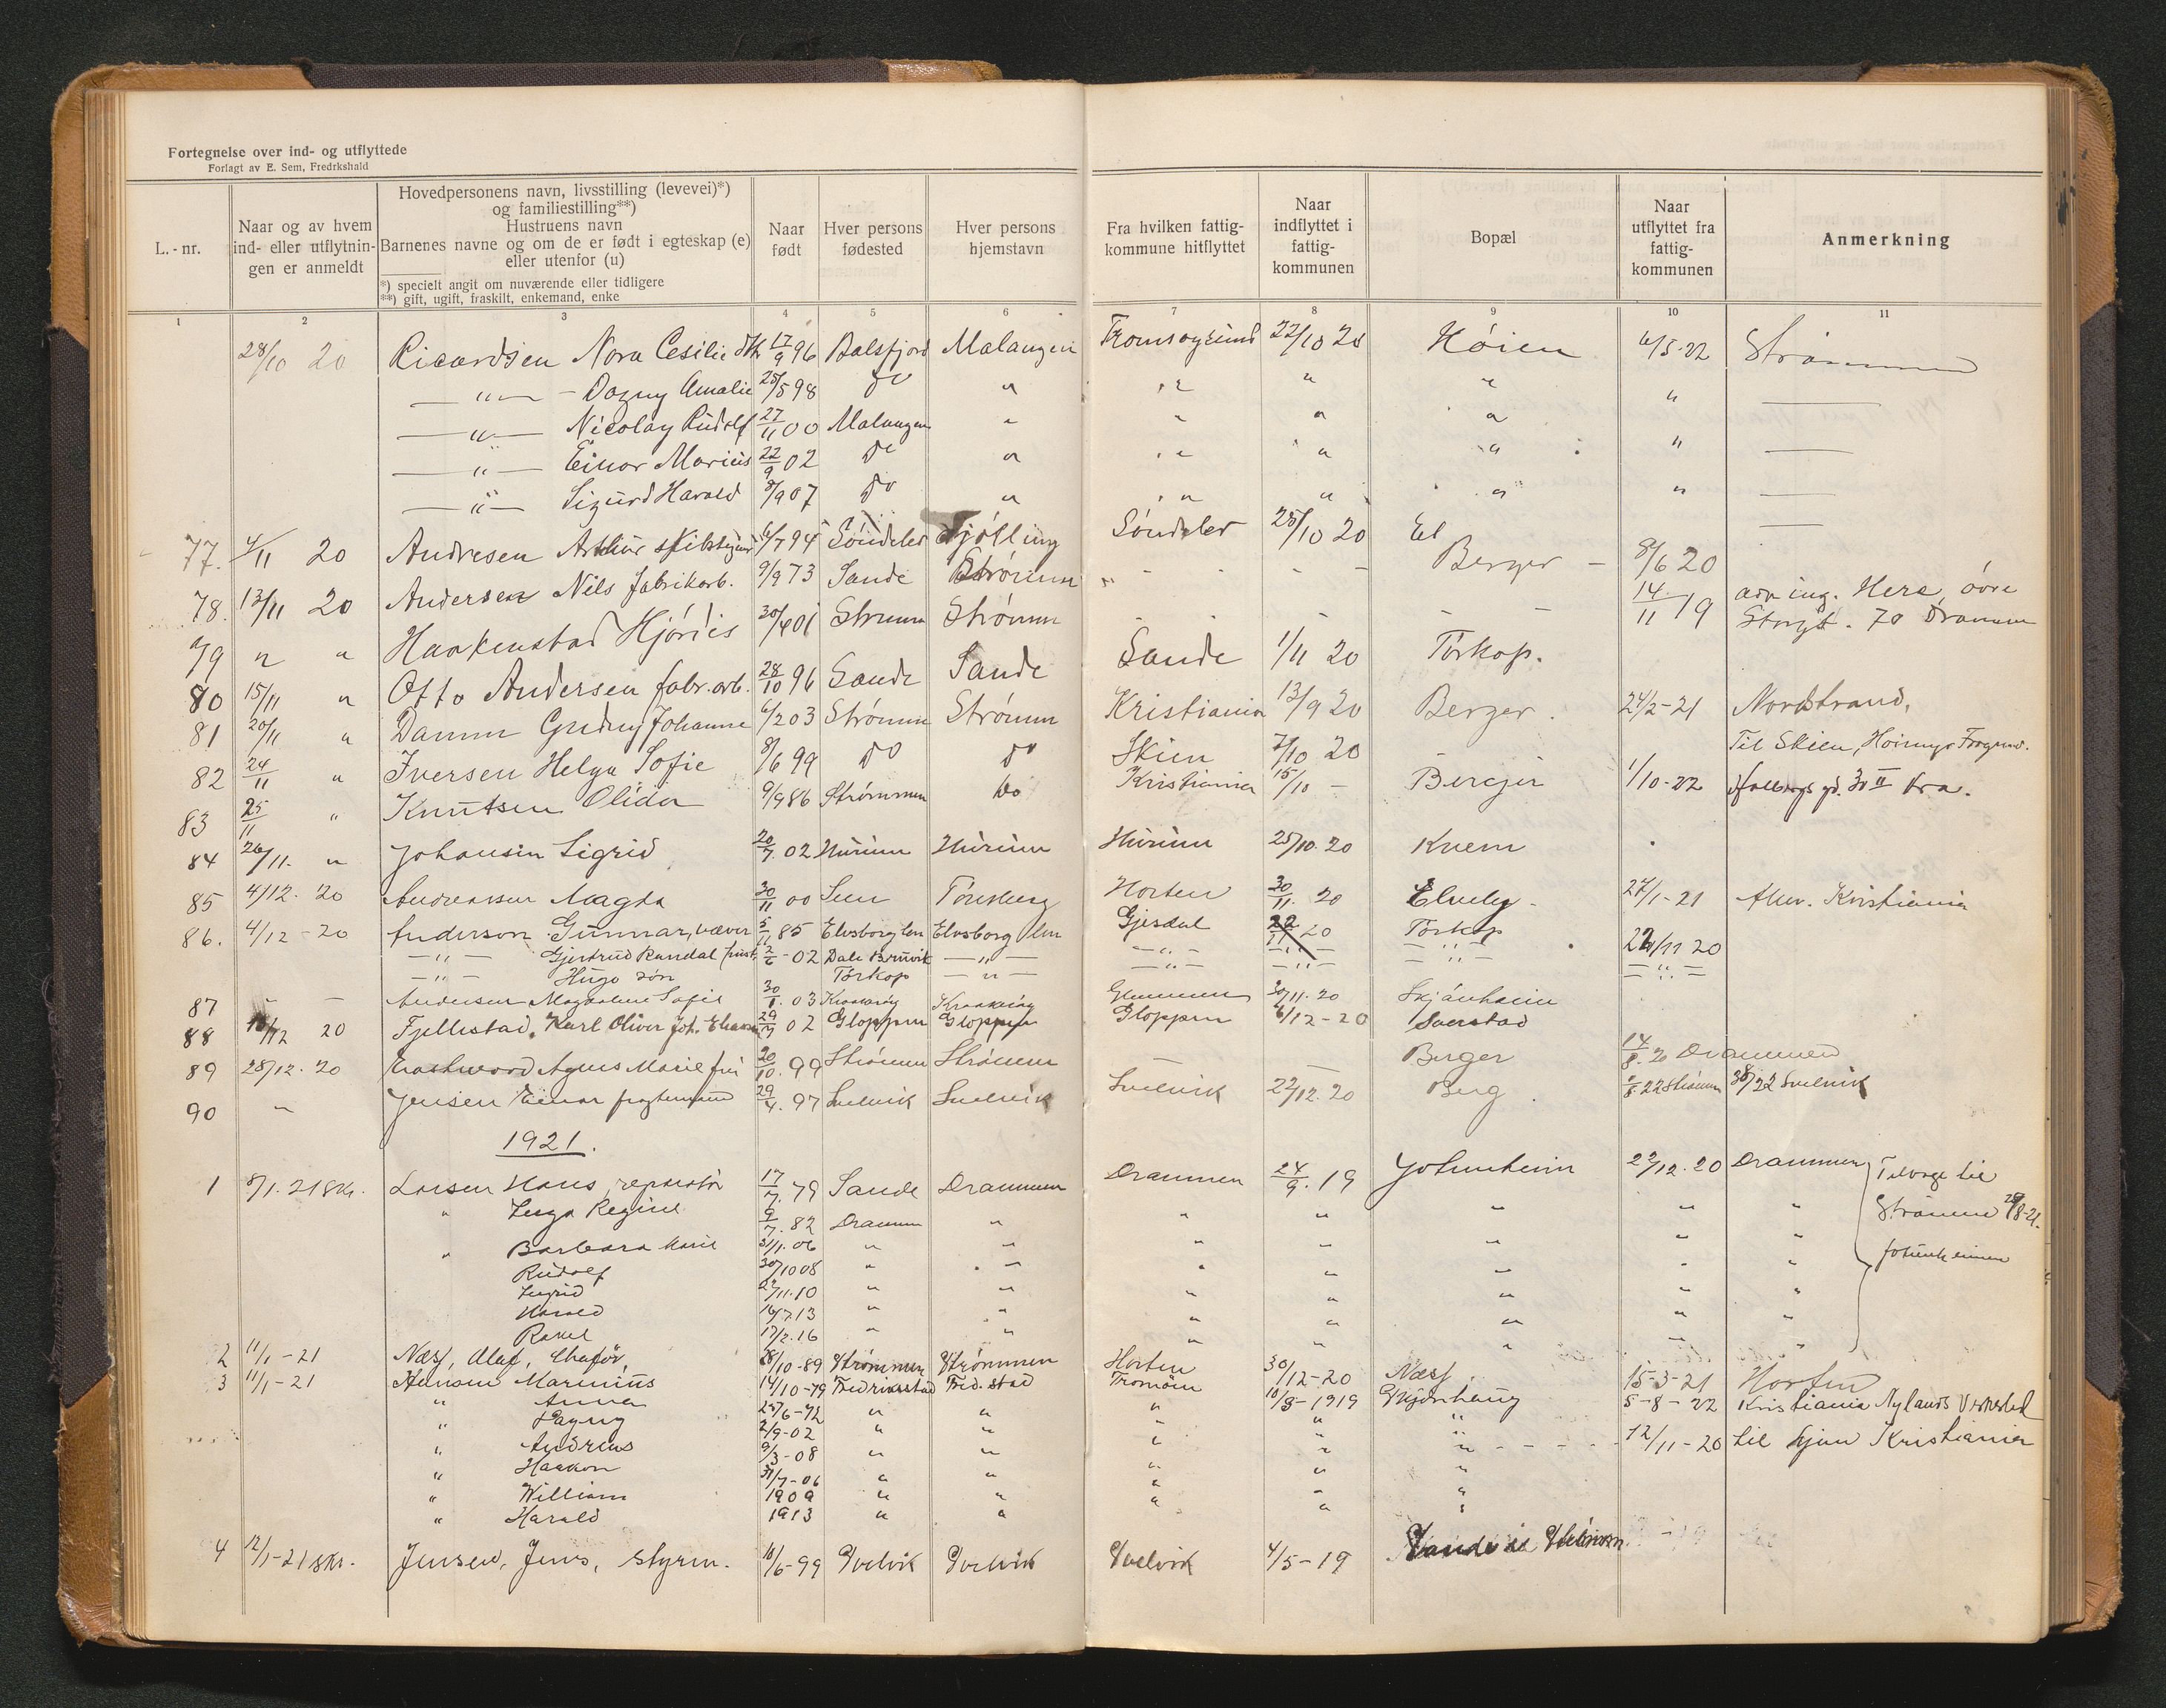 Fortegnelse over ind- og utflyttede
Forlagt av E. Sem, Fredrkshald
L.-nr.
Naar og av hvem ind- eller utflytningen er anmeldt
Hovedpersonens navn, livsstilling (levevei)*) og familiestilling**)
Hustruens navn
Barnenes navne og om de er født i egteskap (e) eller utenfor (u)
*) specielt angit om nuværende eller tidligere
**) gift, ugift, fraskilt, enkemand, enke
Naar født
Hver persons fødested
Hver persons hjemstavn
Fra hvilken fattigkommune hitflyttet
Naar indflyttet i fattigkommunen
Bopæl
Naar utflyttet fra fattigkommunen
Anmerkning
1 2 3 4 5 6 7 8 9 10 11
28/10 20 Ricardsen Nora Cesilie 17/9 96 Balsfjord Malangen Tromsøysund 22/10 20 Høien 6/5-22 Strømmen
— " — Dagny Amalie 25/5 98 do " " " " "
— " — Nicolay Rudolf 27/11 00 Malangen " " " " "
— " — Einar Marius 22/9 02 do " " " " "
— " — Sigurd Harald 8/9 07 do " " " " "
77. 4/11 20 Andresen Arthur 6/7 94 Søndeled Tjølling Søndeled 25/10 20 Ek
78. 13/11 20 Andersen Nils fabrikarb. 9/9 73 Sande Strømm " - - - Berger - 8/6 20
79 " " Haakenstad Hjørdis 30/4 01 Strømm Strømm - - - - 14/11 19 adr ing. Here, øvre Storgt. 70 Dramm
80 15/11 " Otto Andersen fabr.arb. 28/10 96 Sande Sande Sande 1/11 20 Tørkop.
81 20/11 " Damm Gudny Johanne 6/2 03 Strømm Strømm Kristiania 13/9 20 Berger. 24/2-21 Nordstrand,
82 24/11 " Iversen Helga Sofie 8/6 99 do do Skien 7/10 20 Til Skien,
83 25/11 " Knutsen Olida 9/9 86 Strømmen do Kristiania 15/10 - Berger 1/10-22
84 26/11. " Johansen Sigrid 20/7. 02 Hurum Hurum Hurum 25/10. 20 Knem
85 4/12. 20 Andreassen Magda 30/11 00 Sem Tønsberg Horten 30/11. 20 Elneby. 27/1-21 Kristiania
86. 4/12-20 Anderson Gunnar, væver 5/11 85 Elvsborg len Elvsborg len Gjesdal 22/11 20 Tørkop 22/11 20
— " — Gjertrud Randal hust. 2/6-02 Dale Bruvik — " — — " — — " — — " — — " —
— " — Hugo søn Tørkop — " — — " — — " —
87 - - Andersen Magdalene Sofie 30/1. 03 Kraakerøy Kraakerøy Glemmen 30/11. 20 Skjånheim
88 10/12 20 Fjellestad, Karl Oliver Joh. 29/7 02 Gloppen Gloppen Gloppen 6/12-20 Sverstad
89 28/12. 20 Eastwood Agnes Marie fru 20/10. 99 Strømm Strømm — — Berger 14/8. 20 Drammen
90 " Jensen Einar 29/4. 97 Svelvik Svelvik Svelvik 22/12. 20 Berg. 1/8 22 Strømm Svelvik
1921.
1 8/1. 21 skr. Larsen Hans, reparatør 17/7. 79 Sande Drammen Drammen 24/9. 19 Jotunheim 22/12. 20 Drammen Tilbage til
" Inga Regine 9/7. 82 Dramm " " " " " " Strømm 29/8-21.
" Barbara Marie 31/1. 06 " " " " " " " Jotunheimen
Rudolf 30/10 08 " " " " " " "
Ingrid 29/11. 10 " " " " " " "
Harald 16/7. 13 " " " " " " "
Rakel 17/2. 16 " " " " " " "
2 11/1-21 Næss, Olaf, Chafør, 28/10-89 Strømmen Strømmen Horten 30/12-20 Næss. 15-3-21 Horten
3 11/1-21 Hansen Marinius 14/10-79 Fredriksstad Fred.stad Tromøen 10/8-1919 Skjønhaug 5-8-22 Kristiania Nylands Verksted
" Anna 25/6-72 " " " " "
" Dagny 2/9-02 " " " " " - - - 12/11-20 til hjem Kristiania
" Andreas 9/3-08 " " " " "
" Haakon 31/7-06 " " " " "
" William 1909 " " " " "
" Harald 1913 " " " " "
4 12/1-21 skr. Jensen, Jens, styrm. 10/6-99 Svelvik Svelvik Svelvik 4/5-19 Strømm